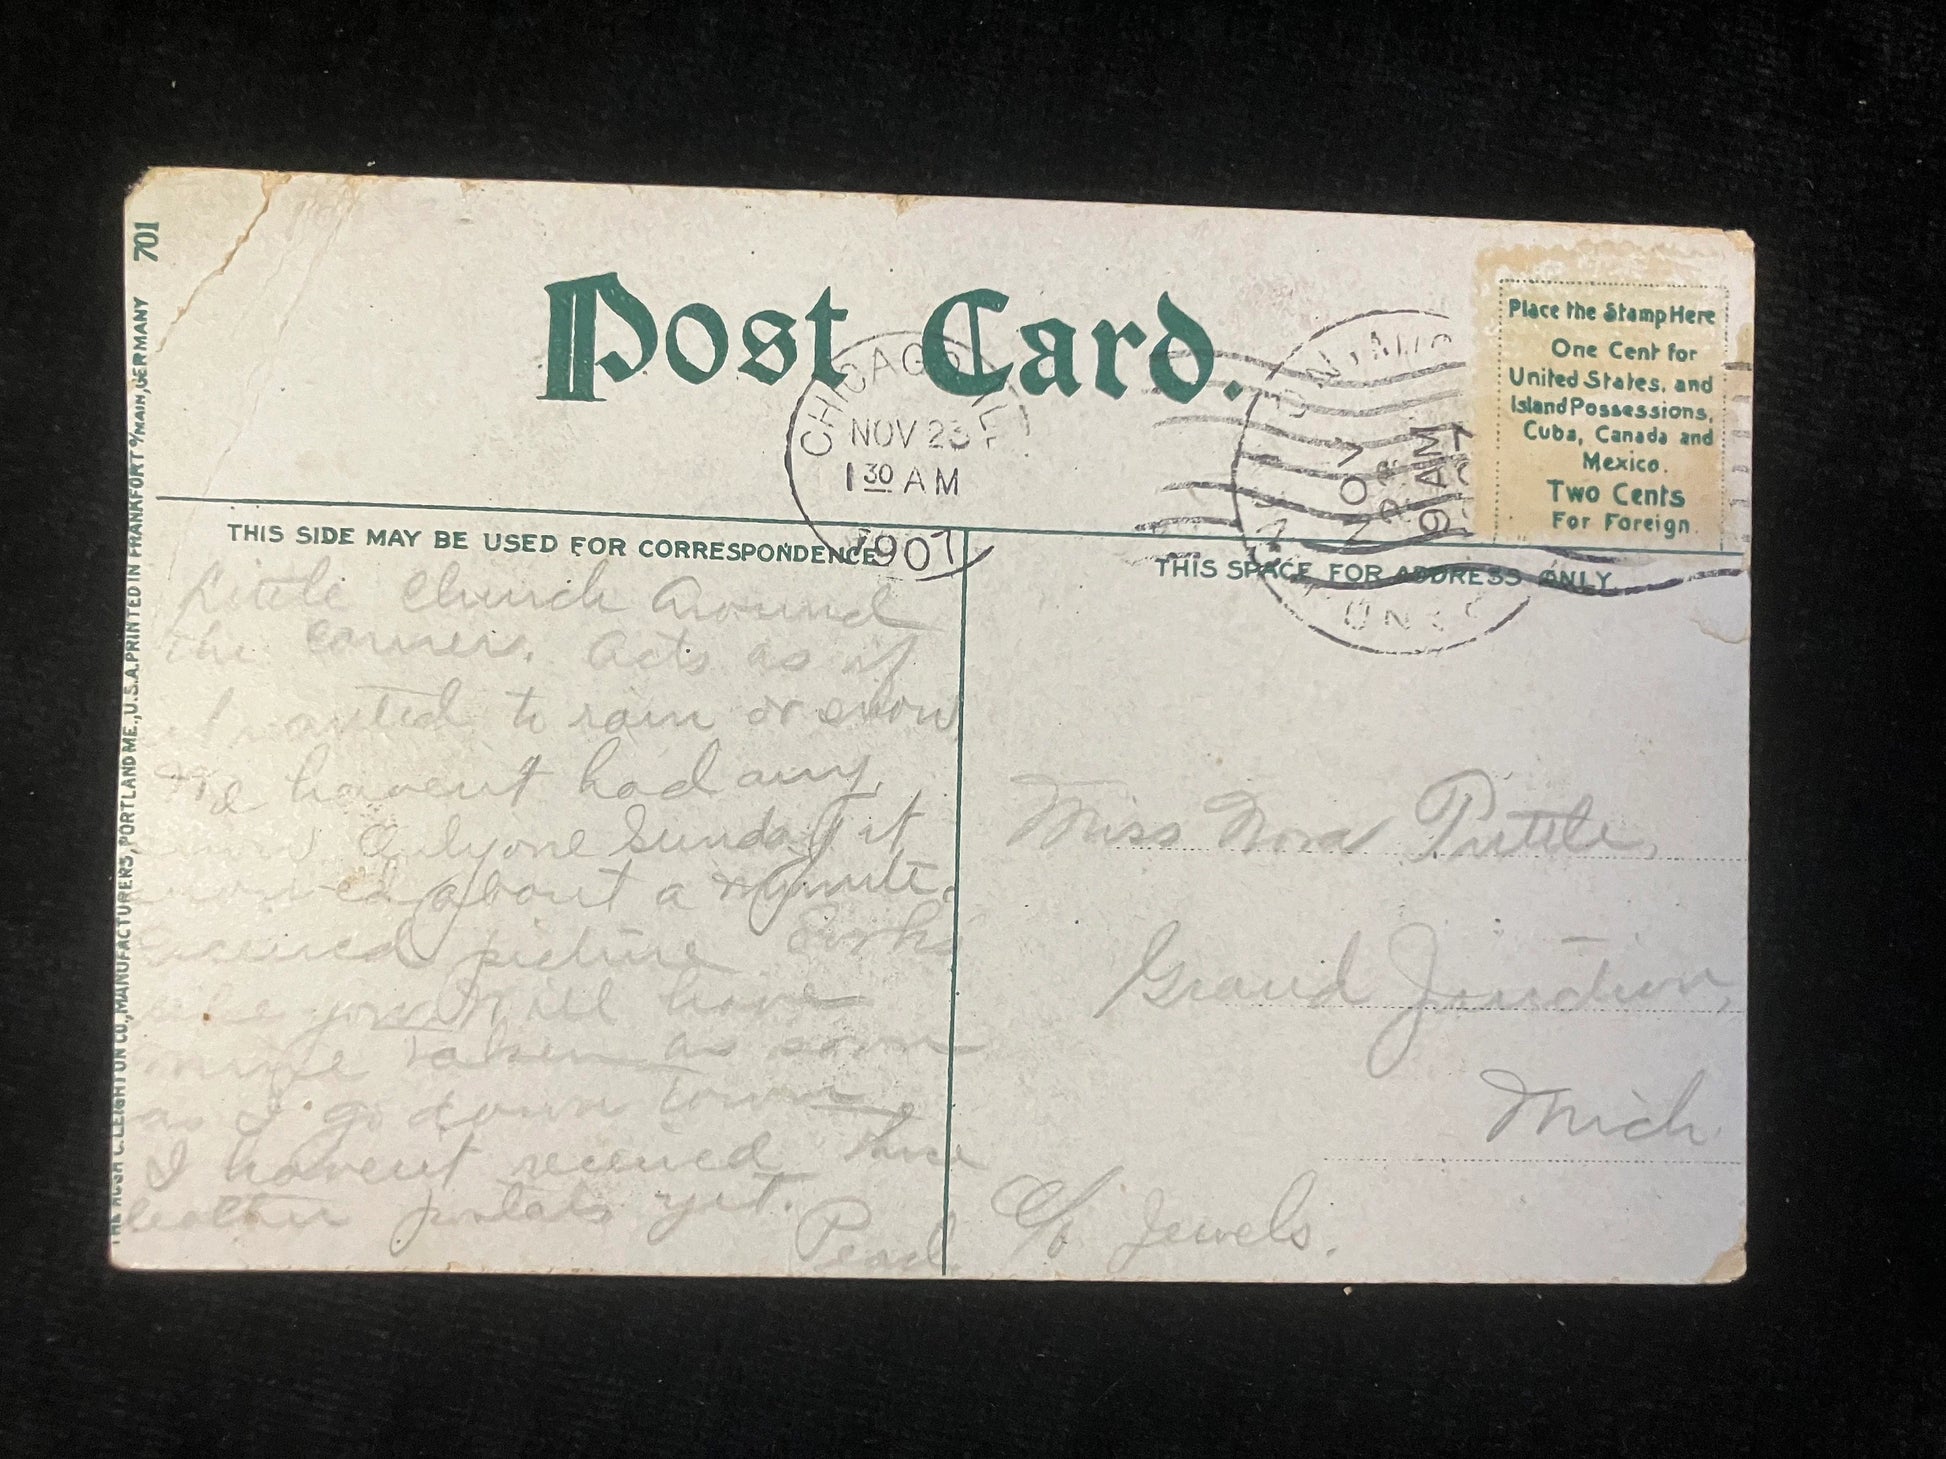 701
Post Card.
CHICAGO, ILL
NOV 23
1 30 AM
1907
NOV
9 AM
Place the Stamp Here
One Cent for
United States, and
Island Possessions,
Cuba, Canada and
Mexico.
Two Cents
For Foreign.
THIS SIDE MAY BE USED FOR CORRESPONDENCE
THIS SPACE FOR ADDRESS ONLY.
THE HUGH C. LEIGHTON CO., MANUFACTURERS, PORTLAND ME., U.S.A. PRINTED IN FRANKFORT o/MAIN, GERMANY
Little Church Around
the corner. Acts as if
it wanted to rain or snow
We havent had any
Only one Sunday it
snowed about a minute.
Received picture looks
like you Will have
mine taken as soon
as I go down town
I havent received those
leather postals yet.
Pearl
Miss Nora Tuttle,
Grand Junction,
Mich.
C/o Jewels.